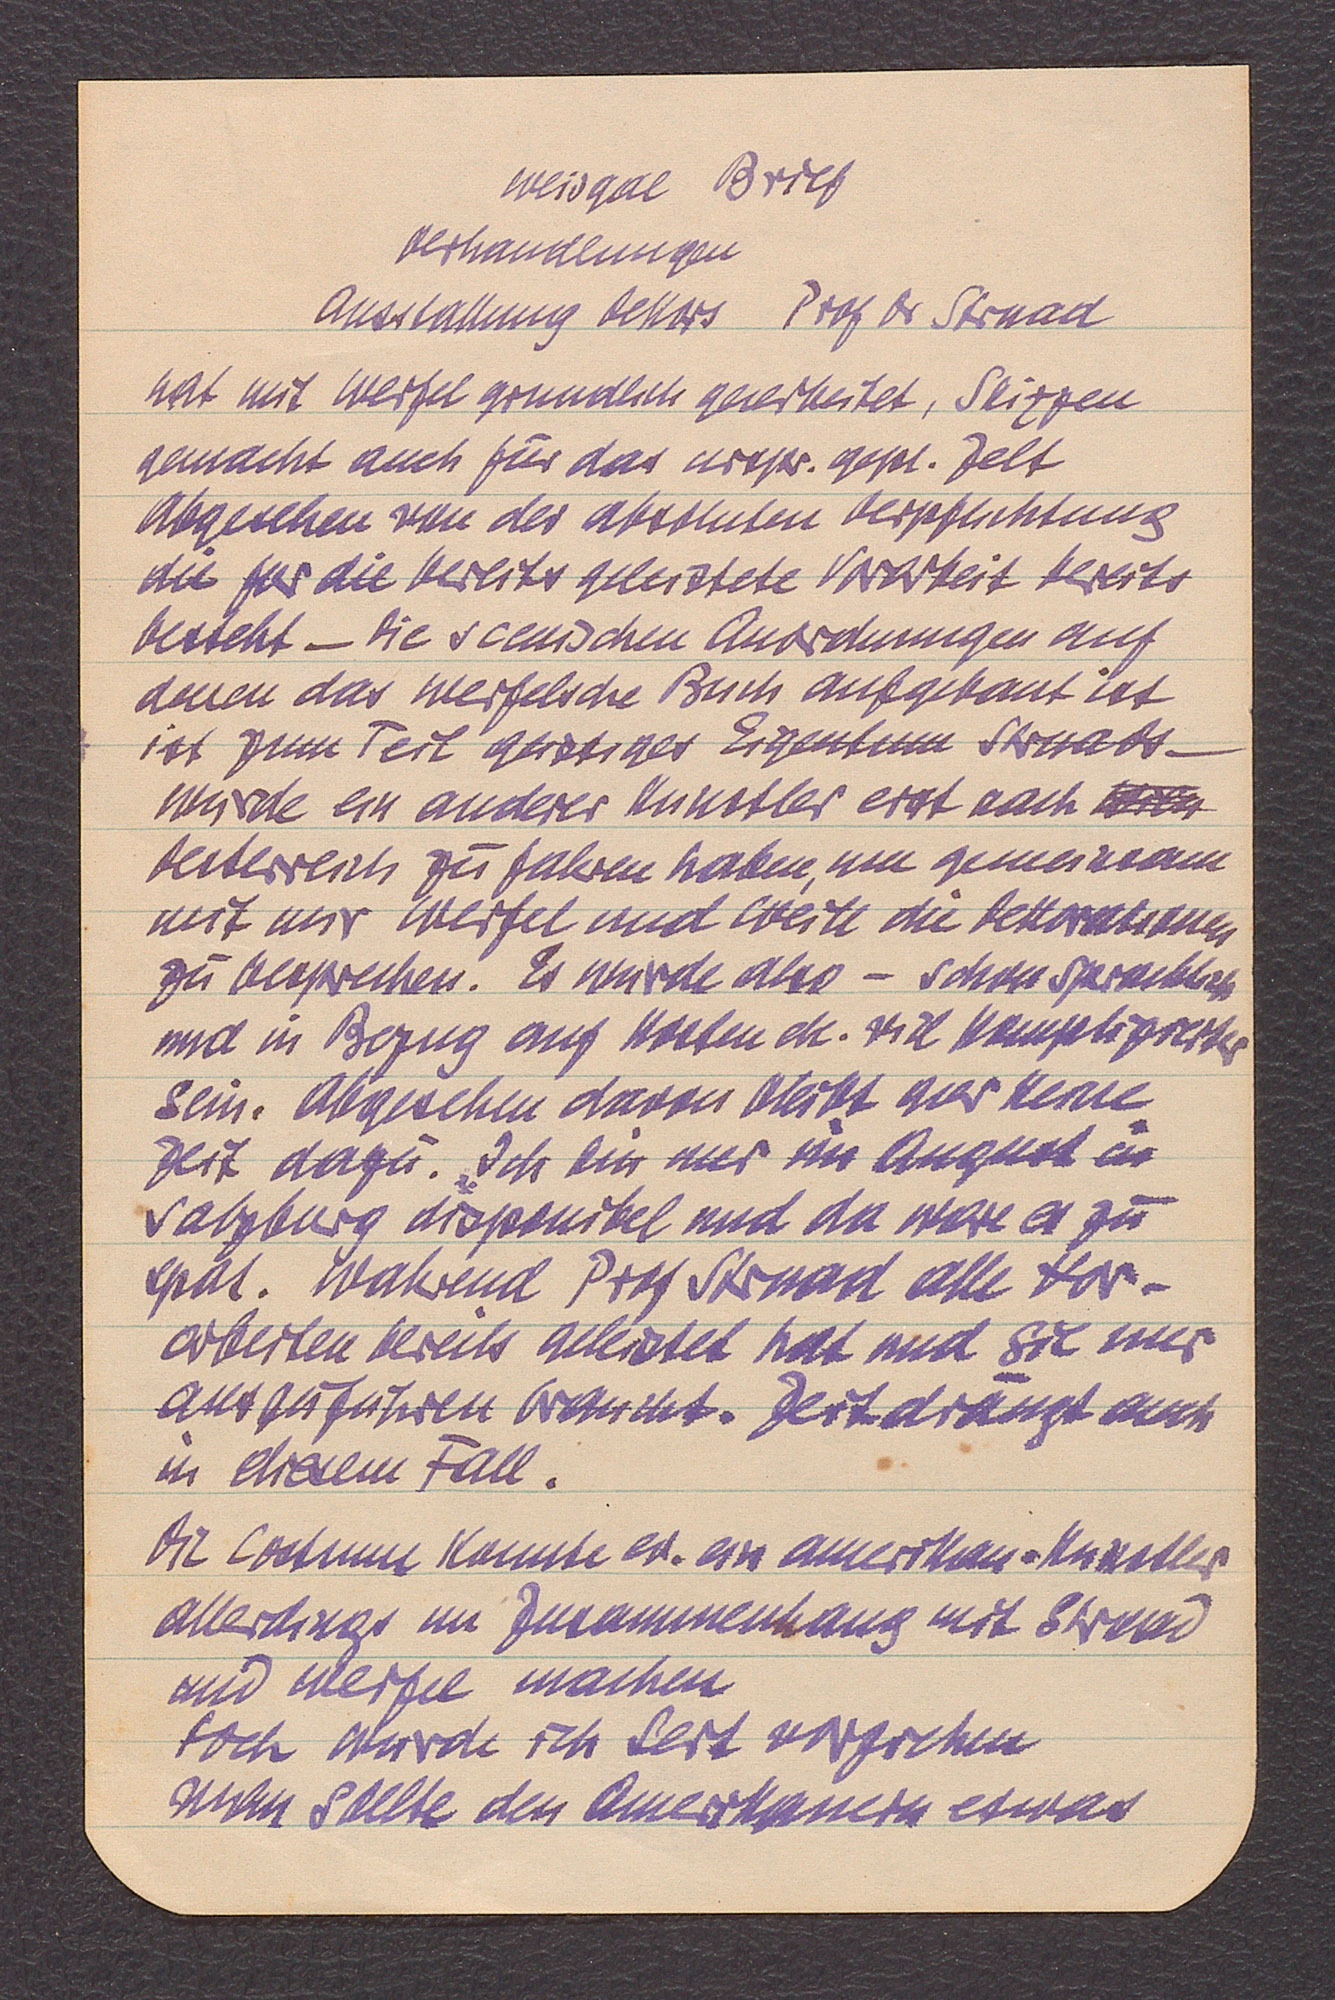 Weisgal Brief
Verhandlungen
Ausstattung Dekors Prof Dr Strnad
hat mit Werfel grundlich gearbeitet, Skizzen
gemacht auch für das urspr. gepl. Zelt
Abgesehen von der absoluten Verpflichtung
die fur die bereits geleistete Vorarbeit bereits
besteht – Die scenischen Anordnungen auf
denen das Werfelsche Buch aufgebaut ist
ist zum Teil geistiges Eigentum Strnads –
wurde ein anderer Kunstler erst nach
Oesterreich zu fahren haben, um gemeinsam
mit mir Werfel und Weill die Dekorationen
zu besprechen. Es wurde also – schon sprachlich
und in Bezug auf Kosten etc. viel komplizierter
sein. Abgesehen davon bleibt gar keine
Zeit dazu. Ich bin nur im August in
Salzburg disponibel und da ware es zu
spat. Wahrend Prof Strnad alle Vor-
arbeiten bereits geleistet hat und sie nur
auszufuhren braucht. Zeit drängt auch
in diesem Fall.
Die Costume konnte ev. ein amerikan. Kunstler
allerdings im Zusammenhang mit Strnad
und Werfel machen
Doch wurde ich Sert vorziehen
man sollte den Amerikanern etwas